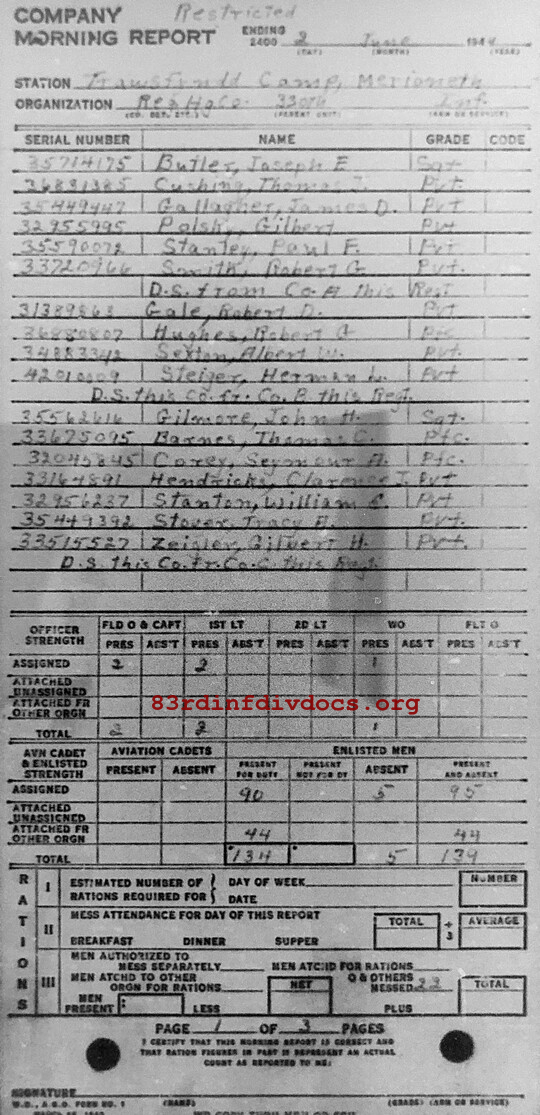 COMPANY Restricted
MORNING REPORT ENDING 2400 2 June 1944
(DAY) (MONTH) (YEAR)
STATION Camp, Merioneth
ORGANIZATION Reg Hq Co 330th Inf.
(CO. DET. ETC.) (PARENT UNIT) (ARM OR SERVICE)
SERIAL NUMBER NAME GRADE CODE
35714175 Butler, Joseph E Sgt
36831385 Cushing, Thomas J. Pvt.
35449447 Gallagher, James D. Pvt
32955995 Polsky, Gilbert Pvt
35590072 Stanley, Paul F. Pvt
33720966 Smith, Robert G Pvt.
D.S. from Co A this Regt
31389863 Gale, Robert D. Pvt
36880807 Hughes, Robert G Pfc
34883342 Sexton, Albert W. Pvt.
42010009 Steiger, Herman L. Pvt
D.S. this Co. fr. Co. B this Regt.
35562616 Gilmore, John H. Sgt.
33675095 Barnes, Thomas C. Pfc.
32045845 Corey, Seymour A. Pfc.
33164891 Hendricks, Clarence I. Pvt
32956237 Stanton, William C. Pvt
35449392 Stover, Tracy A. Pvt.
33515527 Zeigler, Gilbert H. Pvt.
D.S. this Co. fr. Co. C this Regt.
OFFICER STRENGTH FLD O & CAPT 1ST LT 2D LT WO FLT O
PRES ABS'T PRES ABS'T PRES ABS'T PRES ABS'T PRES ABS'T
ASSIGNED 2 2 1
ATTACHED UNASSIGNED
ATTACHED FR OTHER ORGN
83rdinfdivdocs.org
TOTAL 2 2 1
AVN CADET & ENLISTED STRENGTH AVIATION CADETS ENLISTED MEN
PRESENT ABSENT PRESENT FOR DUTY PRESENT NOT FOR DY ABSENT PRESENT AND ABSENT
ASSIGNED 90 5 95
ATTACHED UNASSIGNED
ATTACHED FR OTHER ORGN 44 44
TOTAL 134 5 139
RATIONS
I ESTIMATED NUMBER OF RATIONS REQUIRED FOR { DAY OF WEEK DATE NUMBER
II MESS ATTENDANCE FOR DAY OF THIS REPORT TOTAL ÷ 3 AVERAGE
BREAKFAST DINNER SUPPER
III MEN AUTHORIZED TO MESS SEPARATELY MEN ATCHD FOR RATIONS
MEN ATCHD TO OTHER ORGN FOR RATIONS NET O & OTHERS MESSED 22 TOTAL
MEN PRESENT LESS PLUS
PAGE 1 OF 3 PAGES
I CERTIFY THAT THIS MORNING REPORT IS CORRECT AND
THAT RATION FIGURES IN PART II REPRESENT AN ACTUAL
COUNT AS REPORTED TO ME:
SIGNATURE
W.D., A.G.O. FORM NO. 1 (NAME) (GRADE) (ARM OR SERVICE)